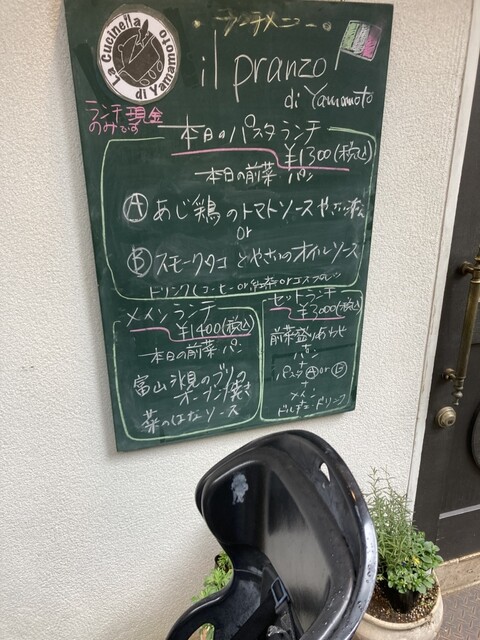 La Cucinella
di Yamamoto
ランチメニュー
il pranzo
di Yamamoto
ランチ現金
のみです
本日のパスタランチ
¥1300(税込)
本日の前菜 パン
Ⓐ あじ鶏のトマトソース やさい添え
or
Ⓑ スモークタコとやさいのオイルソース
ドリンク(コーヒー or 紅茶 or エスプレッソ
メインランチ
¥1400(税込)
本日の前菜 パン
富山氷見のブリの
オーブン焼き
菜のはなソース
セットランチ
¥3000(税込)
前菜盛りあわせ
パン
+
パスタ Ⓐ or Ⓑ
+
メイン
ドルチェ・ドリンク